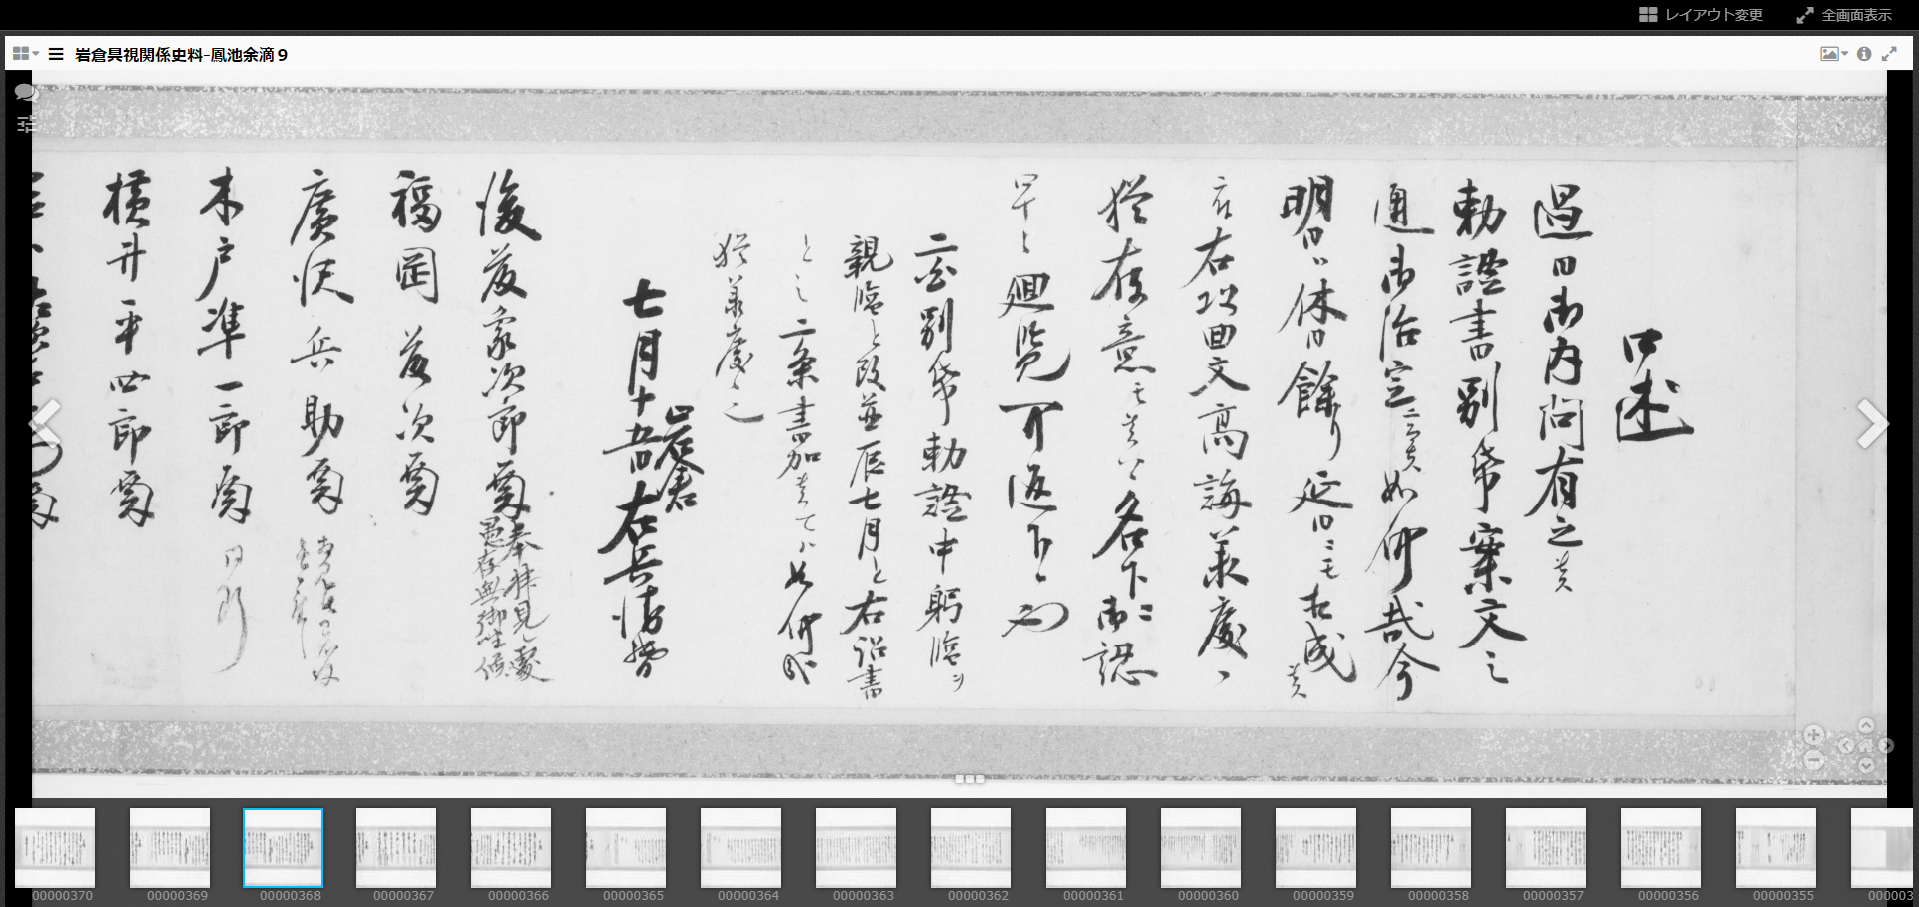 レイアウト変更
全画面表示
岩倉具視関係史料-鳳池余滴９
口述
過日御内問有之候
勅諚書別紙案文之
通御治定二候哉如何哉今
明日ハ休日餘り延日ニモ相成候
右以回文高諭承度
猶存意モ候ハヽ名下ニ御認
早々廻覧可返下候也
二白別紙勅諚中躬臨ヲ
親臨と改並辰七月と右詔書
とし二条書加候テハ如何哉
猶承度候也
七月十五日
岩倉
右兵衛督
後藤象次郎殿
奉拝見候處
愚存無御座候
福岡藤次殿
廣沢兵助殿
木戸準一郎殿
同断
横井平四郎殿
00000370
00000369
00000368
00000367
00000366
00000365
00000364
00000363
00000362
00000361
00000360
00000359
00000358
00000357
00000356
00000355
000003